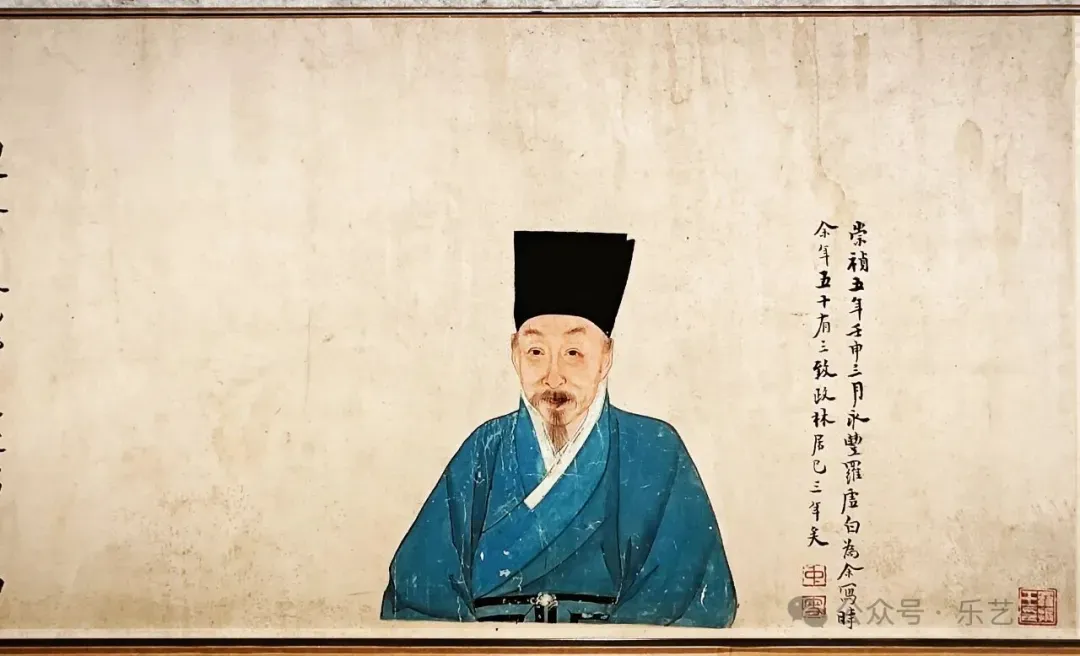 崇禎五年壬申三月永豐羅虛白為余寫時
余年五十有三致政林居已三年矣
公众号 · 乐艺